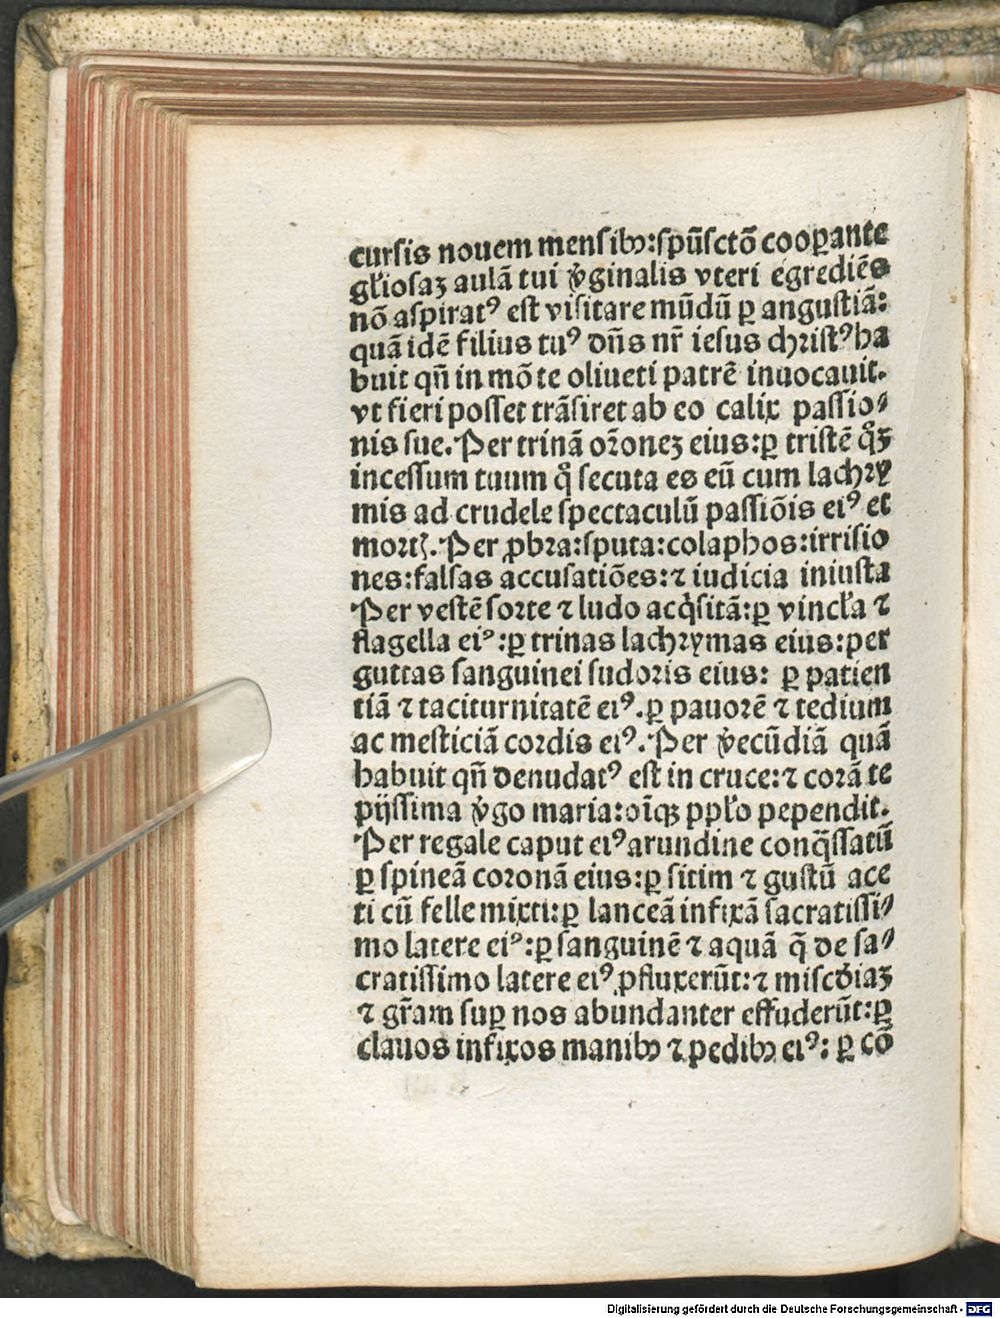 cursis nouem mensibꝫ:spūsctō cooꝑante
gl'iosaꝫ aulā tui v̾ginalis vteri egrediēs
nō aspiratꝰ est visitare mūdū ꝑ angustiā:
quā idē filius tuꝰ dn̄s nr̄ iesus christꝰ ha
buit qn̄ in mōte oliueti patrē inuocauit.
vt fieri posset trāsiret ab eo calix passio⸗
nis sue. Per trinā or̄onez eius:ꝑ tristē q̊ꝫ
incessum tuum q̊ secuta es eū cum lachry
mis ad crudele spectaculū passiōis eiꝰ et
mortꝭ. Per ꝓbra:sputa:colaphos:irrisio
nes:falsas accusatiōes:⁊ iudicia iniusta
Per vestē sorte ⁊ ludo acq̇sitā:ꝑ vincl'a ⁊
flagella eiꝰ:ꝑ trinas lachrymas eius:per
guttas sanguinei sudoris eius: ꝑ patien
tiā ⁊ taciturnitatē eiꝰ.ꝑ pauorē ⁊ tedium
ac mesticiā cordis eiꝰ. Per v̾ecūdiā quā
habuit qn̄ denudatꝰ est in cruce:⁊ corā te
pijssima v̾go maria:oīqꝫ ppl'o pependit.
Per regale caput eiꝰ arundine conq̄ssatū
ꝑ spineā coronā eius:ꝑ sitim ⁊ gustū ace
ti cū felle mixti:ꝑ lanceā infixā sacratissi⸗
mo latere eiꝰ:ꝑ sanguinē ⁊ aquā q̄ de sa⸗
cratissimo latere eiꝰ ꝓfluxerūt:⁊ misc̾diaꝫ
⁊ gr̄am suꝑ nos abundanter effuderūt:ꝑ
clauos infixos manibꝫ ⁊ pedibꝫ eiꝰ: ꝑ cō
Digitalisierung gefördert durch die Deutsche Forschungsgemeinschaft - DFG